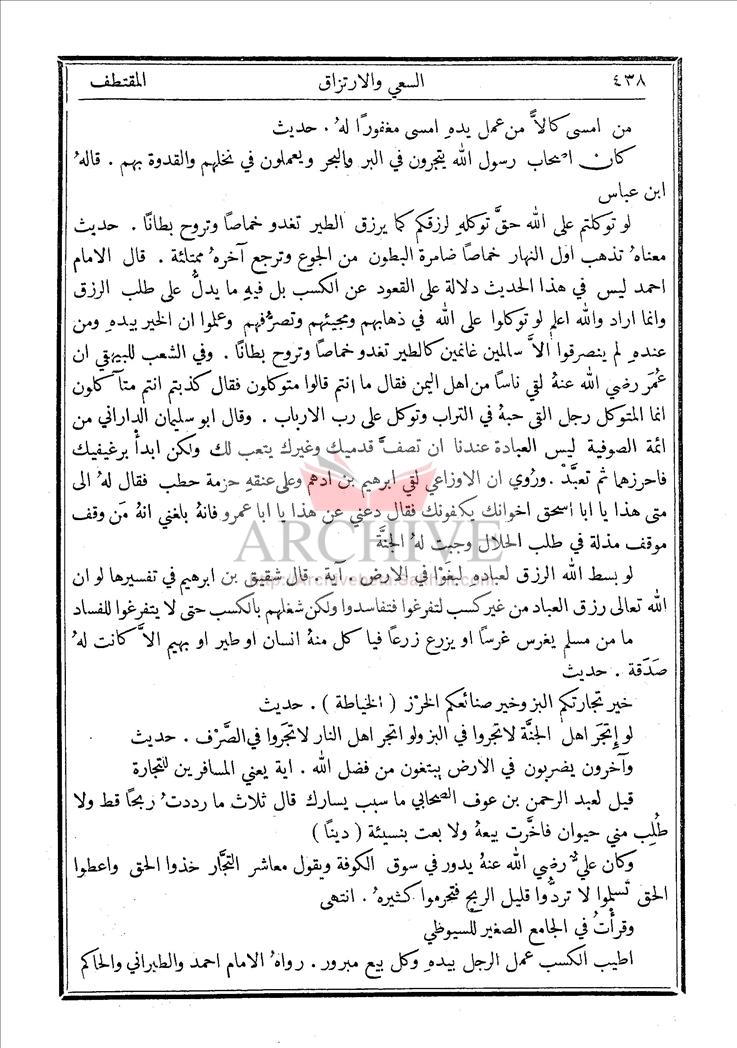 ٤٣٨ السعي والارتزاق المقتطف
من امسى كالاًّ من عمل يدهِ امسى مغفورًا لهُ . حديث
كان اصحاب رسول الله يتجرون في البر والبحر ويعملون في نخلهم والقدوة بهم . قالهُ
ابن عباس
لو توكلتم على الله حقَّ توكلهِ لرزقكم كما يرزق الطير تغدو خماصًا وتروح بطانًا . حديث
معناهُ تذهب اول النهار خماصًا ضامرة البطون من الجوع وترجع آخرهُ ممتلئة . قال الامام
احمد ليس في هذا الحديث دلالة على القعود عن الكسب بل فيهِ ما يدلُّ على طلب الرزق
وانما اراد والله اعلم لو توكلوا على الله في ذهابهم ومجيئهم وتصرُّفهم وعلموا ان الخير بيدهِ ومن
عندهِ لم ينصرفوا الاَّ سالمين غانمين كالطير تغدو خماصًا وتروح بطانًا . وفي الشعب للبيهقي ان
عُمَرَ رضي الله عنهُ لقي ناسًا من اهل اليمن فقال ما انتم قالوا متوكلون فقال كذبتم انتم متآكلون
انما المتوكل رجل القى حبهُ في التراب وتوكل على رب الارباب . وقال ابو سليمان الداراني من
ائمة الصوفية ليس العبادة عندنا ان تصفَّ قدميك وغيرك يتعب لك ولكن ابدأْ برغيفيك
فاحرزها ثم تعبَّدْ . ورُوي ان الاوزاعي لقي ابرهيم بن ادهم وعلى عنقهِ حزمة حطب فقال لهُ الى
متى هذا يا ابا اسحق اخوانك يكفونك فقال دعني عن هذا يا ابا عمرو فانهُ بلغني انهُ مَن وقف
موقف مذلة في طلب الحلال وجبت لهُ الجنَّة
ARCHIVE
لو بسط الله الرزق لعباده لبغَوْا في الارض . آية . قال شقيق بن ابرهيم في تفسيرها لو ان
الله تعالى رزق العباد من غير كسب لتفرغوا فتفاسدوا ولكن شغلهم بالكسب حتى لا يتفرغوا للفساد
ما من مسلم يغرس غرسًا او يزرع زرعًا فيا كل منهُ انسان او طير او بهيم الاَّ كانت لهُ
صَدَقة . حديث
خير تجارتكم البز وخير صنائعكم الخرْز ( الخياطة ) . حديث
لو إِتجَرَ اهل الجنَّة لاتجروا في البز ولو اتجر اهل النار لاتجَروا في الصَّرْف . حديث
وآخرون يضربون في الارض يبتغون من فضل الله . اية يعني المسافرين للتجارة
قيل لعبد الرحمن بن عوف الصحابي ما سبب يسارك قال ثلاث ما رددتُ ربحًا قط ولا
طُلِب مني حيوان فاخَّرت بيعهُ ولا بعت بنسيئة ( دينًا )
وكان عليٌّ رضي الله عنهُ يدور في سوق الكوفة ويقول معاشر التجَّار خذوا الحق واعطوا
الحق تسلموا لا تردُّوا قليل الربح فتحرموا كثيرهُ . انتهى
وقرأْتُ في الجامع الصغير للسيوطي
اطيب الكسب عمل الرجل بيدهِ وكل بيع مبرور . رواهُ الامام احمد والطبراني والحاكم